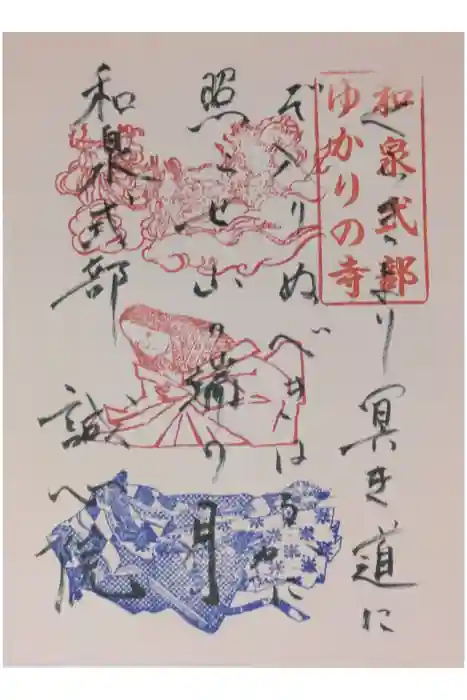 和泉式部
ゆかりの寺
くらきより冥き道に
ぞ入りぬべきはるかに
照らせ山の端の月
和泉式部 誠心院